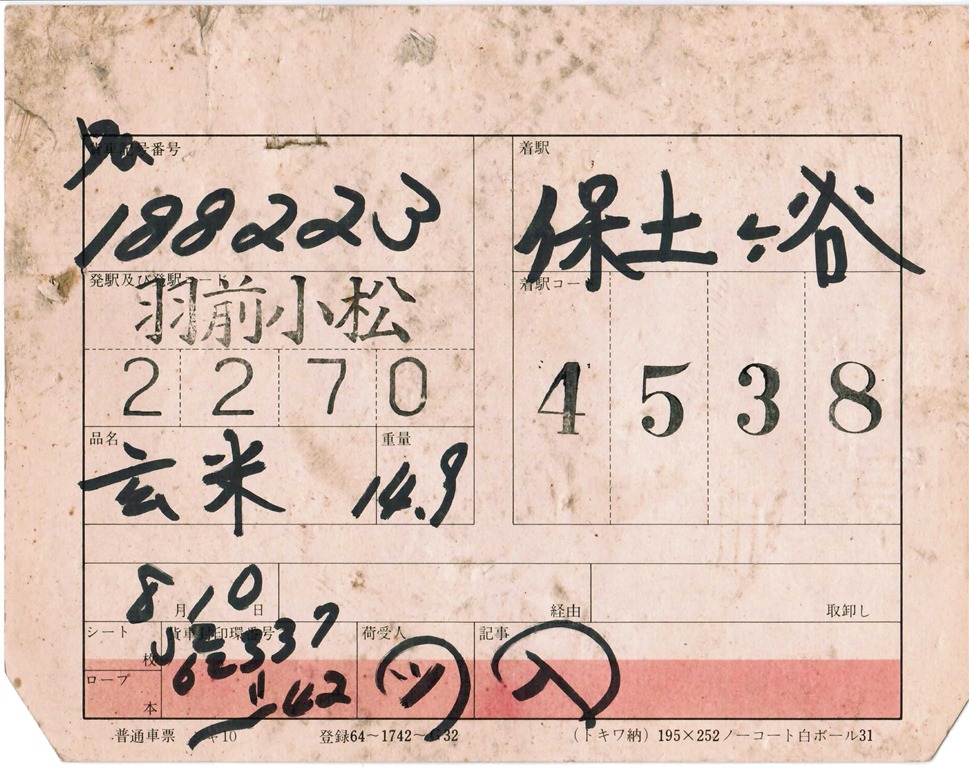 ワム
貨車記号番号
188223
着駅
保土ヶ谷
発駅及び発駅コード
羽前小松
2 2 7 0
着駅コード
4 5 3 8
品名
玄米
重量
14.9
8月10日
経由
取卸し
シート
枚
貨車封印環番号
337
42
ロープ
本
荷受人
ツ
記事
入
普通車票
登録64〜1742〜G32
(トキワ納) 195×252ノーコート白ボール31